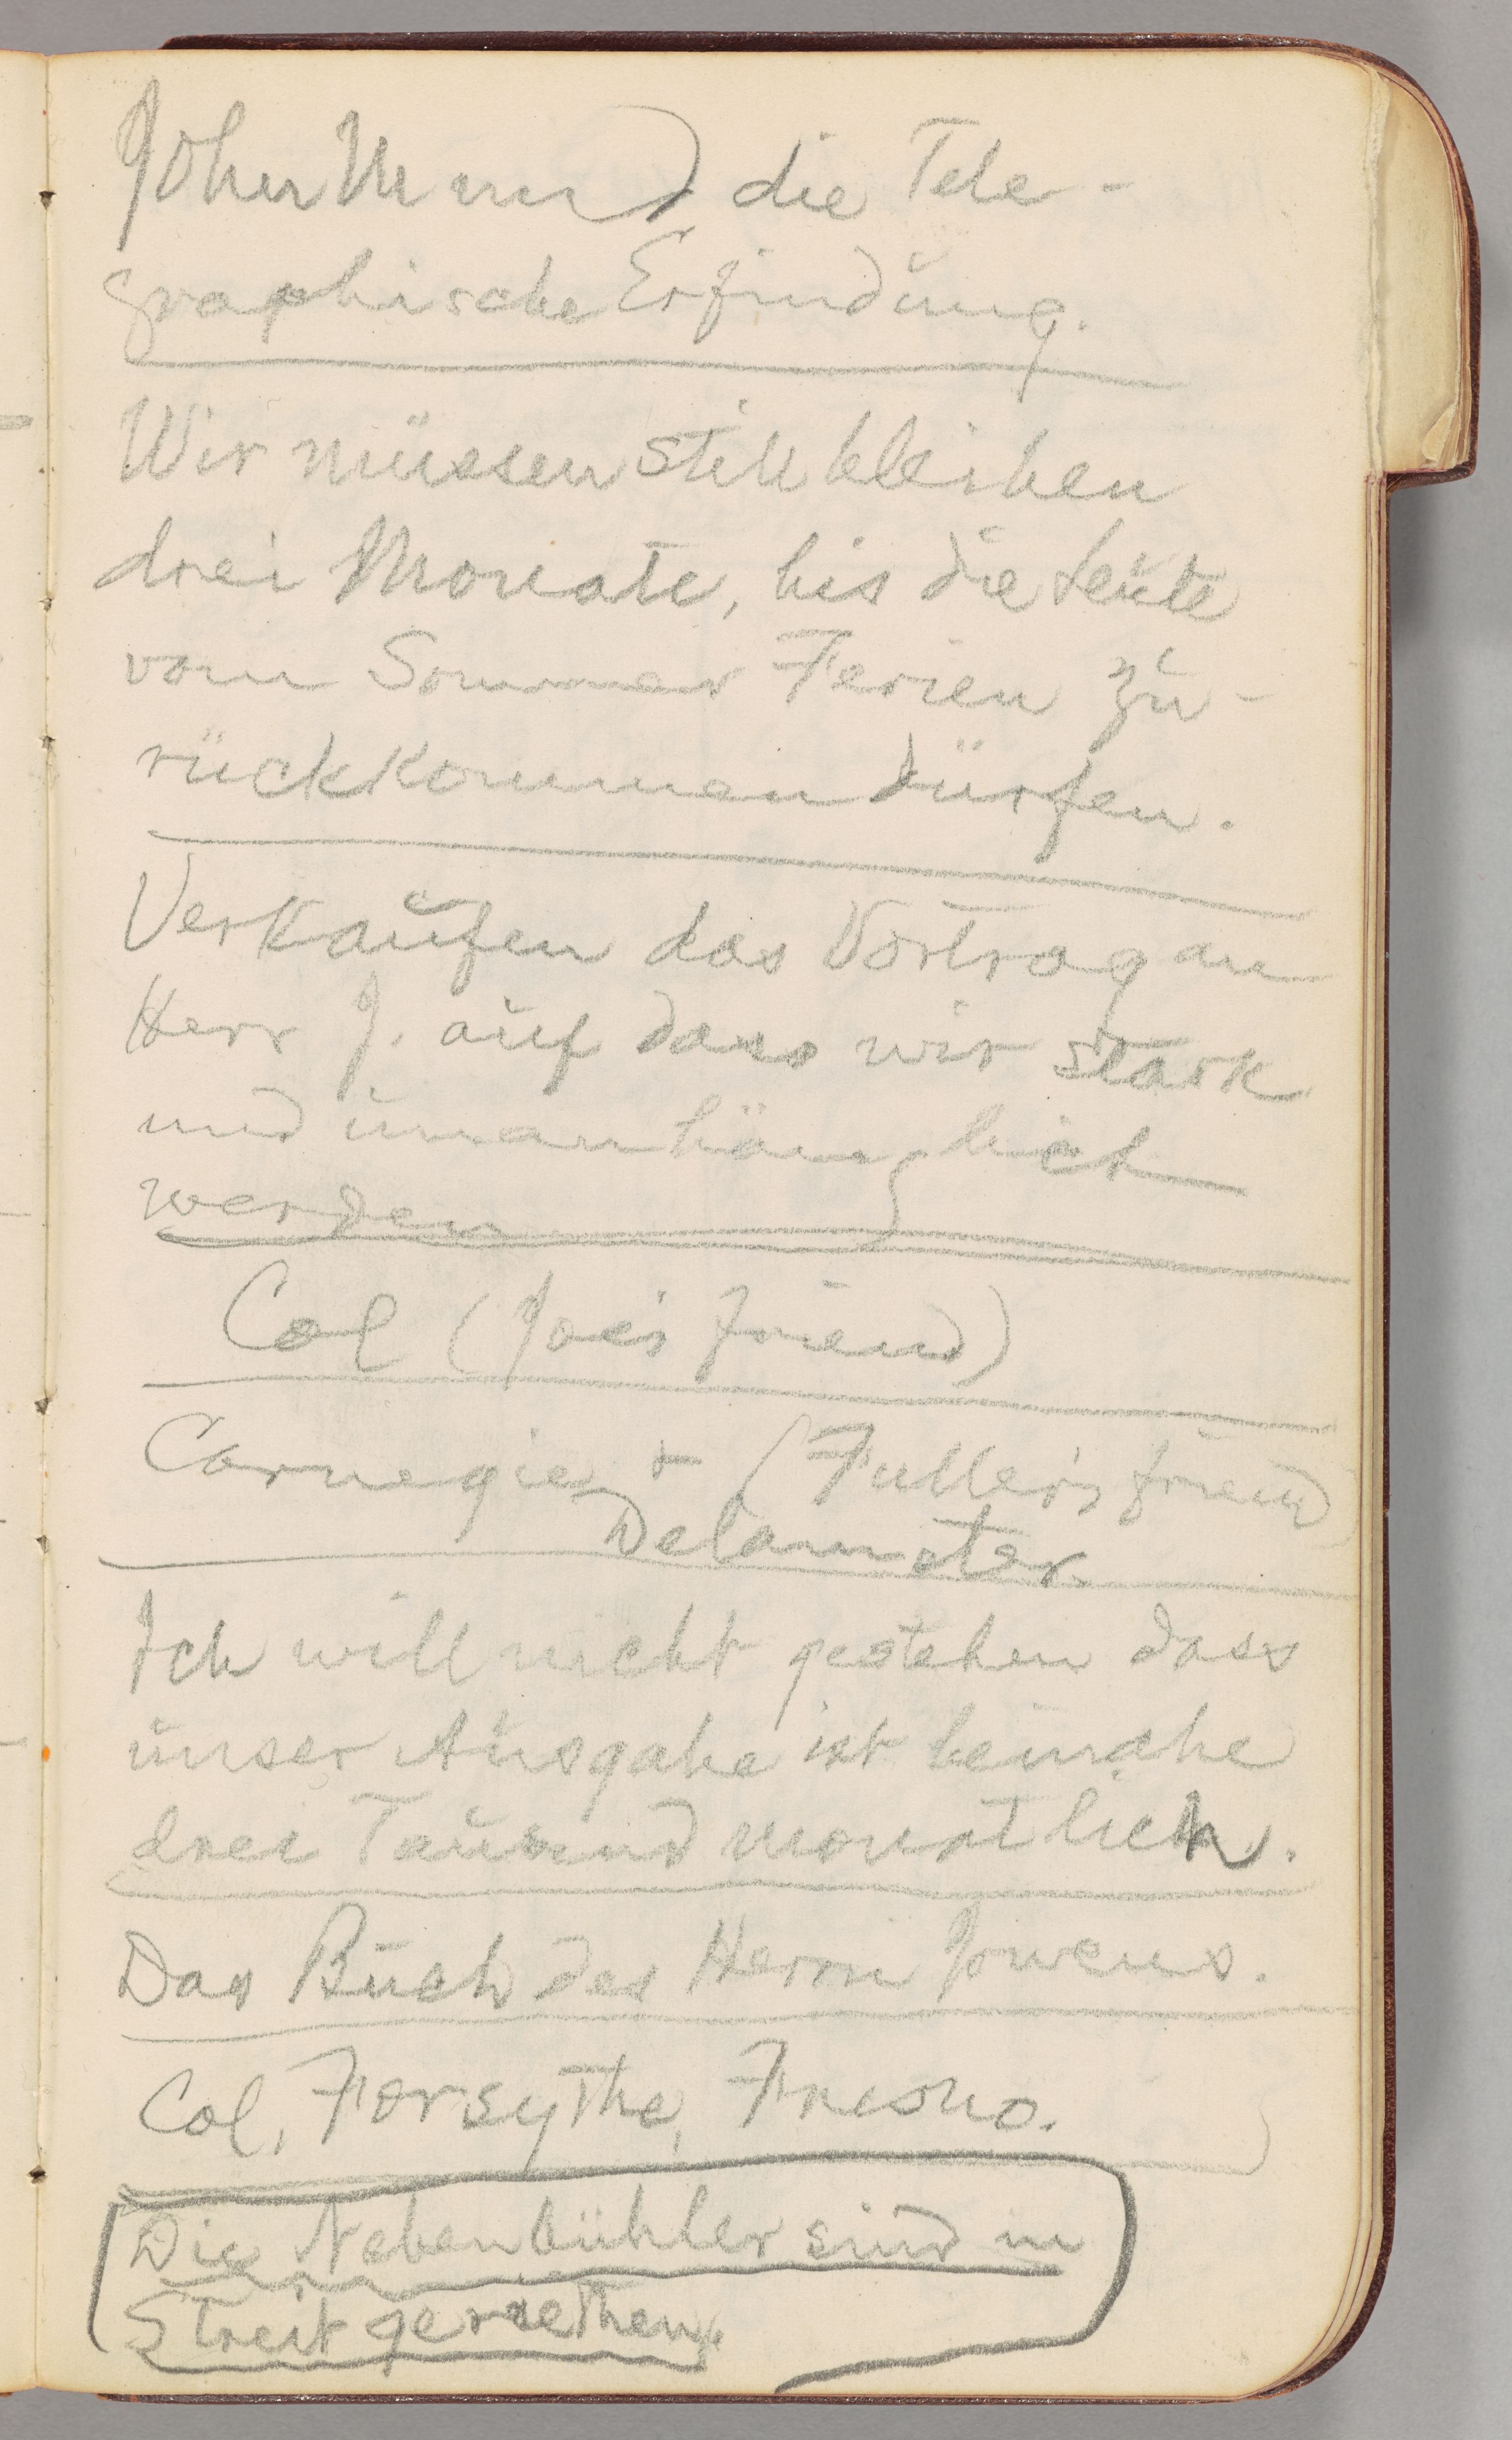 John Mund die Tele-
graphische Erfindung.
Wir müssen still bleiben
drei Monate, bis die Leute
vom Sommer Ferien zu-
rückkommen dürfen.
Verkaufen das Vortrag an
Herr J. auf dass wir stark
und unanhänglich
werden
Col (Joe's friend)
Carnegie + (Fuller's friend)
Delamater
Ich will nicht gestehen dass
unser Ausgabe ist beinahe
drei Tausend monatlich.
Das Buch des Herrn
Col, Forsythe, Fresno.
Die Nebenbühler sind in
Streit geraethen.